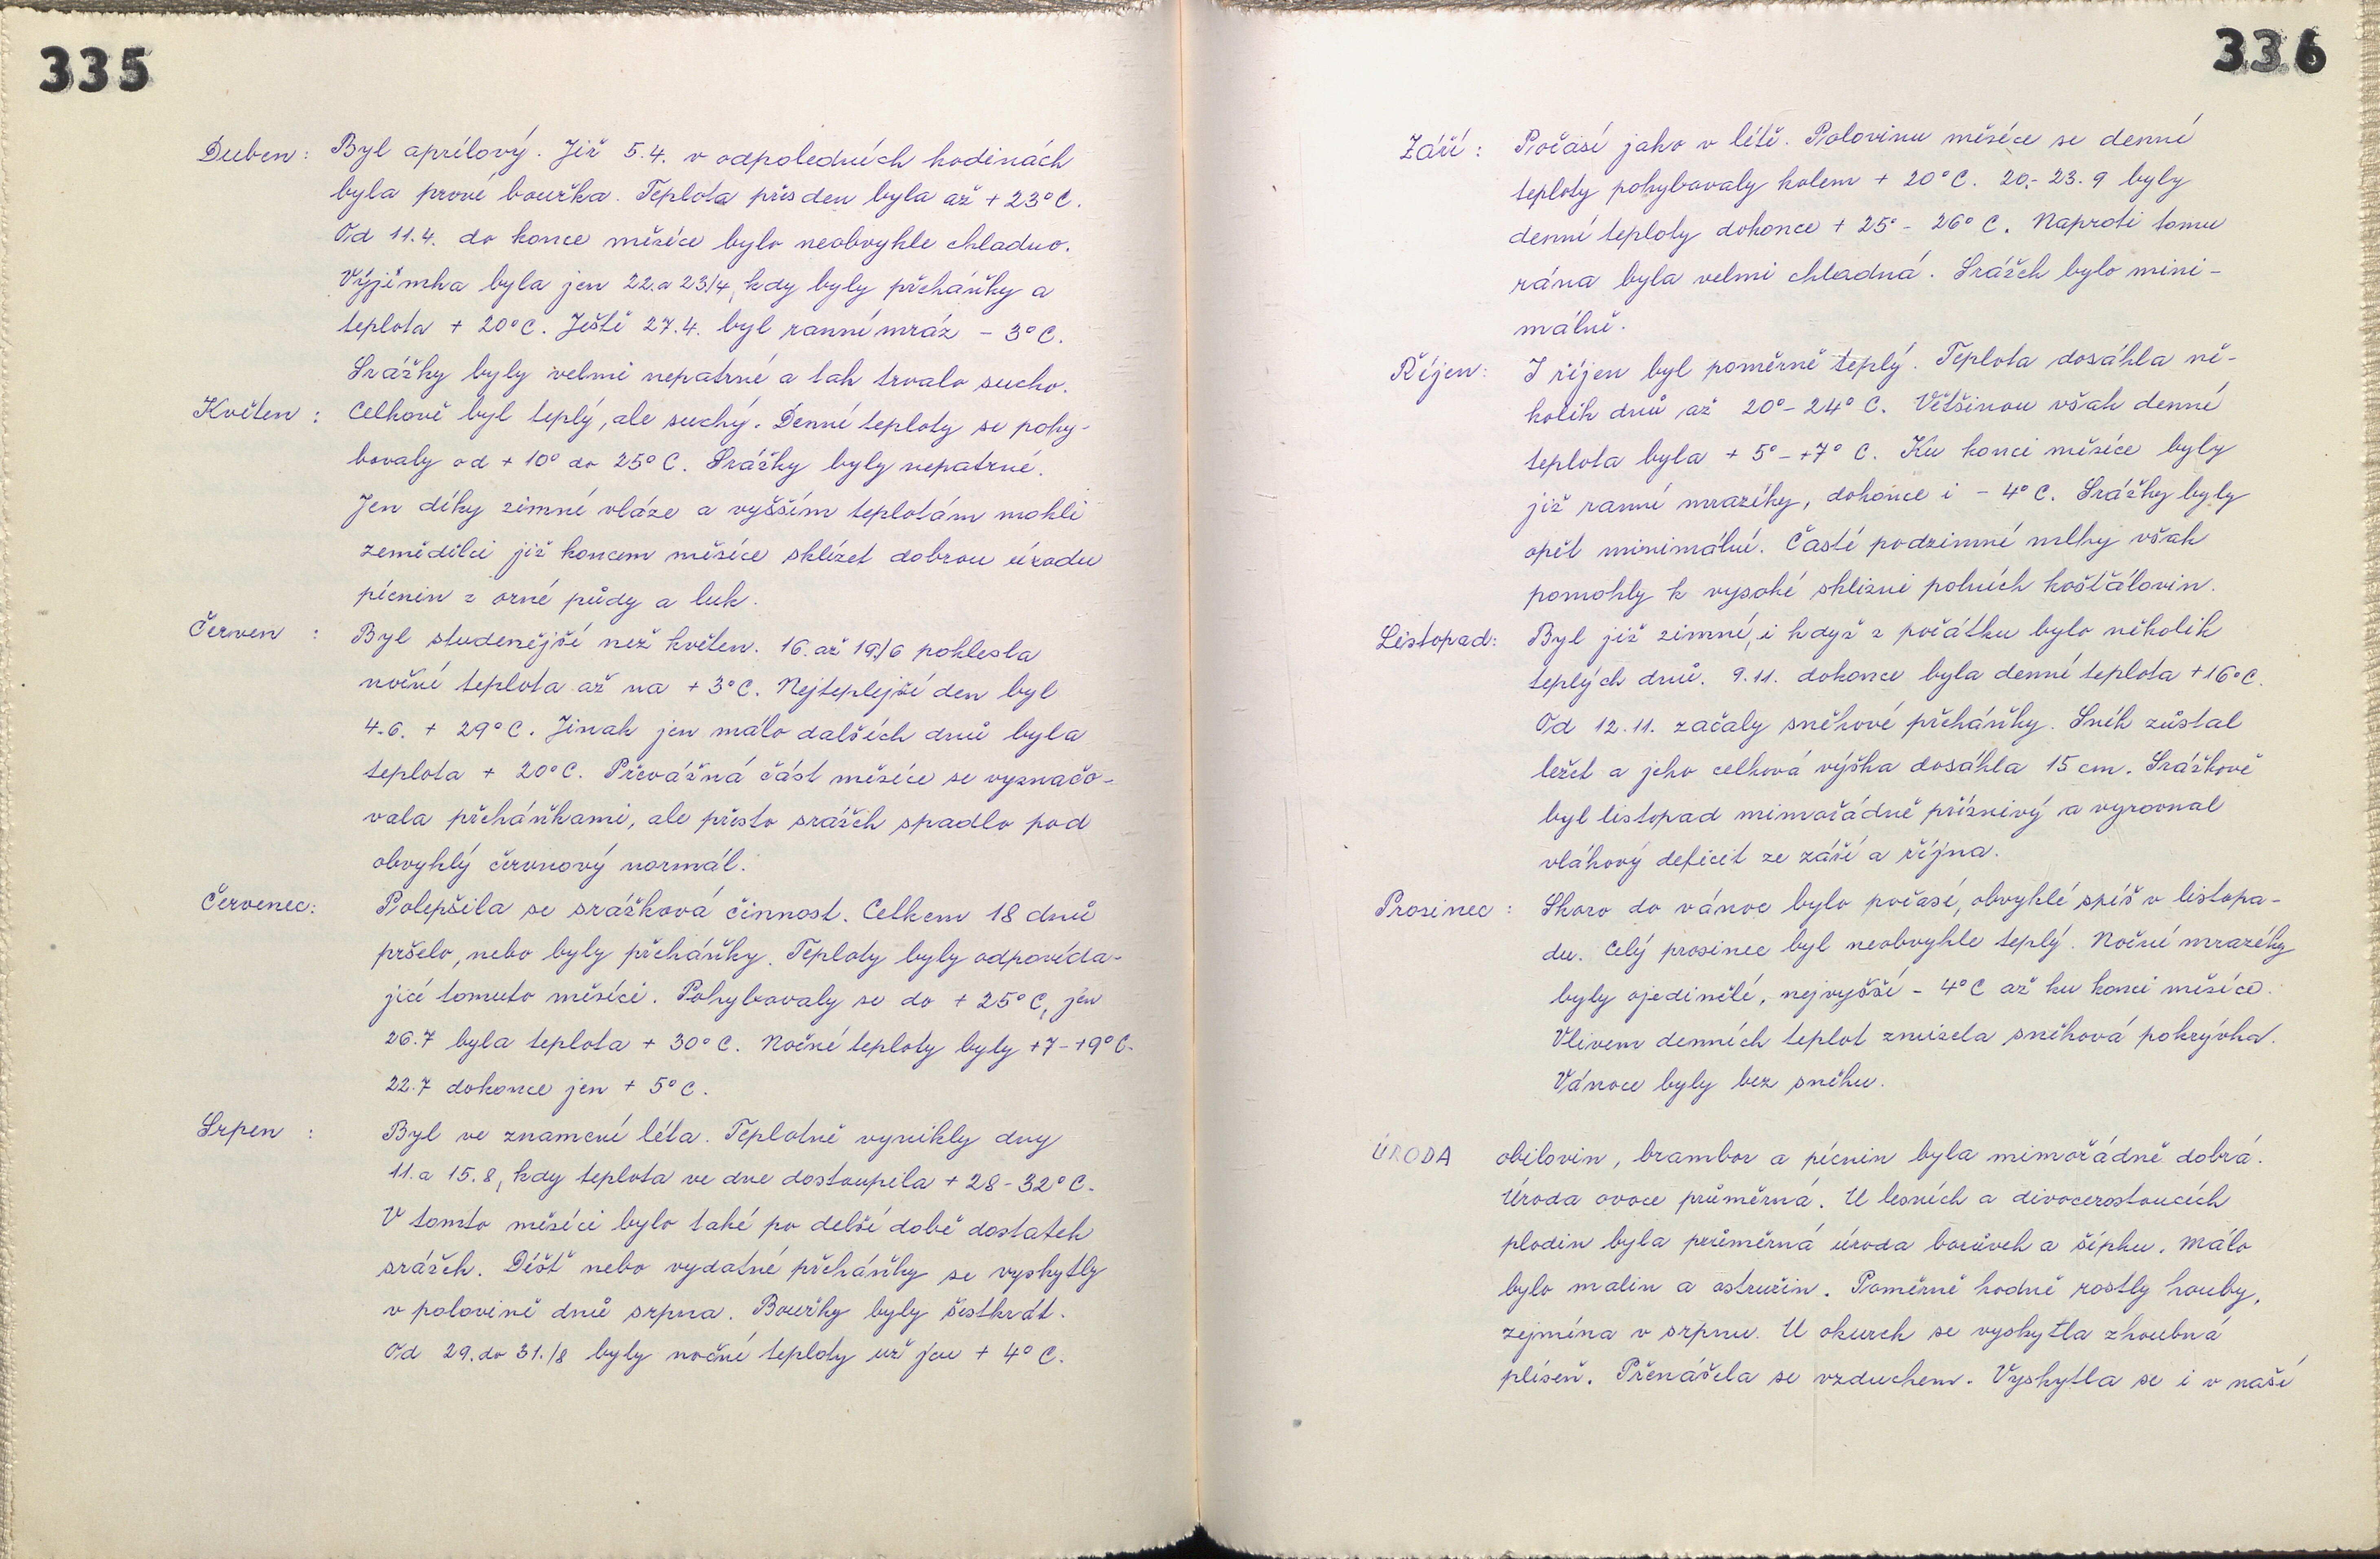 335
Duben: Byl aprílový. Již 5.4. v odpoledních hodinách
byla prvé bouřka. Teplota přes den byla až +23°C.
Od 11.4. do konce měsíce bylo neobvykle chladno.
Výjimka byla jen 22.a 23/4, kdy byly přeháňky a
teplota + 20°C. Ještě 27.4. byl ranní mráz - 3°C.
Srážky byly velmi nepatrné a tak trvalo sucho.
Květen: Celkově byl teplý, ale suchý. Denní teploty se pohy-
bovaly od + 10° do 25° C. Srážky byly nepatrné.
Jen díky zimní vláze a vyšším teplotám mohli
zemědělci již koncem měsíce sklízet dobrou úrodu
pícnin z orné půdy a luk.
Červen : Byl studenější než květen. 16. až 19/6 poklesla
noční teplota až na + 3°C. Nejteplejší den byl
4.6. + 29°C. Jinak jen málo dalších dnů byla
teplota + 20°C. Převážná část měsíce se vyznačo-
vala přeháňkami, ale přesto srážek spadlo pod
obvyklý červnový normál.
Červenec: Polepšila se srážková činnost. Celkem 18 dnů
pršelo, nebo byly přeháňky. Teploty byly odpovída-
jící tomuto měsíci. Pohybovaly se do + 25°C, jen
26.7 byla teplota + 30°C. Noční teploty byly +7-+9°C.
22.7 dokonce jen + 5°C.
Srpen : Byl ve znamení léta. Teplotně vynikly dny
11. a 15.8, kdy teplota ve dne dostoupila + 28-32°C.
V tomto měsíci bylo také po delší době dostatek
srážek. Déšť nebo vydatné přeháňky se vyskytly
v polovině dnů srpna. Bouřky byly šestkrát.
Od 29. do 31./8 byly noční teploty už jen + 4° C.
336
Září : Počasí jako v létě. Polovinu měsíce se denní
teploty pohybovaly kolem + 20°C. 20.- 23.9 byly
denní teploty dokonce + 25°- 26° C. Naproti tomu
rána byla velmi chladná. Srážek bylo mini-
málně.
Říjen: I říjen byl poměrně teplý. Teplota dosáhla ně-
kolik dnů až 20°- 24° C. Většinou však denní
teplota byla + 5°- +7° C. Ku konci měsíce byly
již ranní mrazíky, dokonce i - 4°C. Srážky byly
opět minimální. Časté podzimní mlhy však
pomohly k vysoké sklizni polních košťálovin.
Listopad: Byl již zimní, i když z počátku bylo několik
teplých dnů. 9.11. dokonce byla denní teplota +16°C.
Od 12.11. začaly sněhové přeháňky. Sníh zůstal
ležet a jeho celková výška dosáhla 15 cm. Srážkově
byl listopad mimořádně příznivý a vyrovnal
vláhový deficit ze září a října.
Prosinec : Skoro do vánoc bylo počasí, obvyklé spíš v listopa-
du. Celý prosinec byl neobvykle teplý. Noční mrazíky
byly ojedinělé, nejvyšší - 4°C až ku konci měsíce.
Vlivem denních teplot zmizela sněhová pokrývka.
Vánoce byly bez sněhu.
ÚRODA obilovin, brambor a pícnin byla mimořádně dobrá.
Úroda ovoce průměrná. U lesních a divocerostoucích
plodin byla průměrná úroda borůvek a šípku. Málo
bylo malin a ostružin. Poměrně hodně rostly houby,
zejména v srpnu. U okurek se vyskytla zhoubná
plíseň. Přenášela se vzduchem. Vyskytla se i v naší